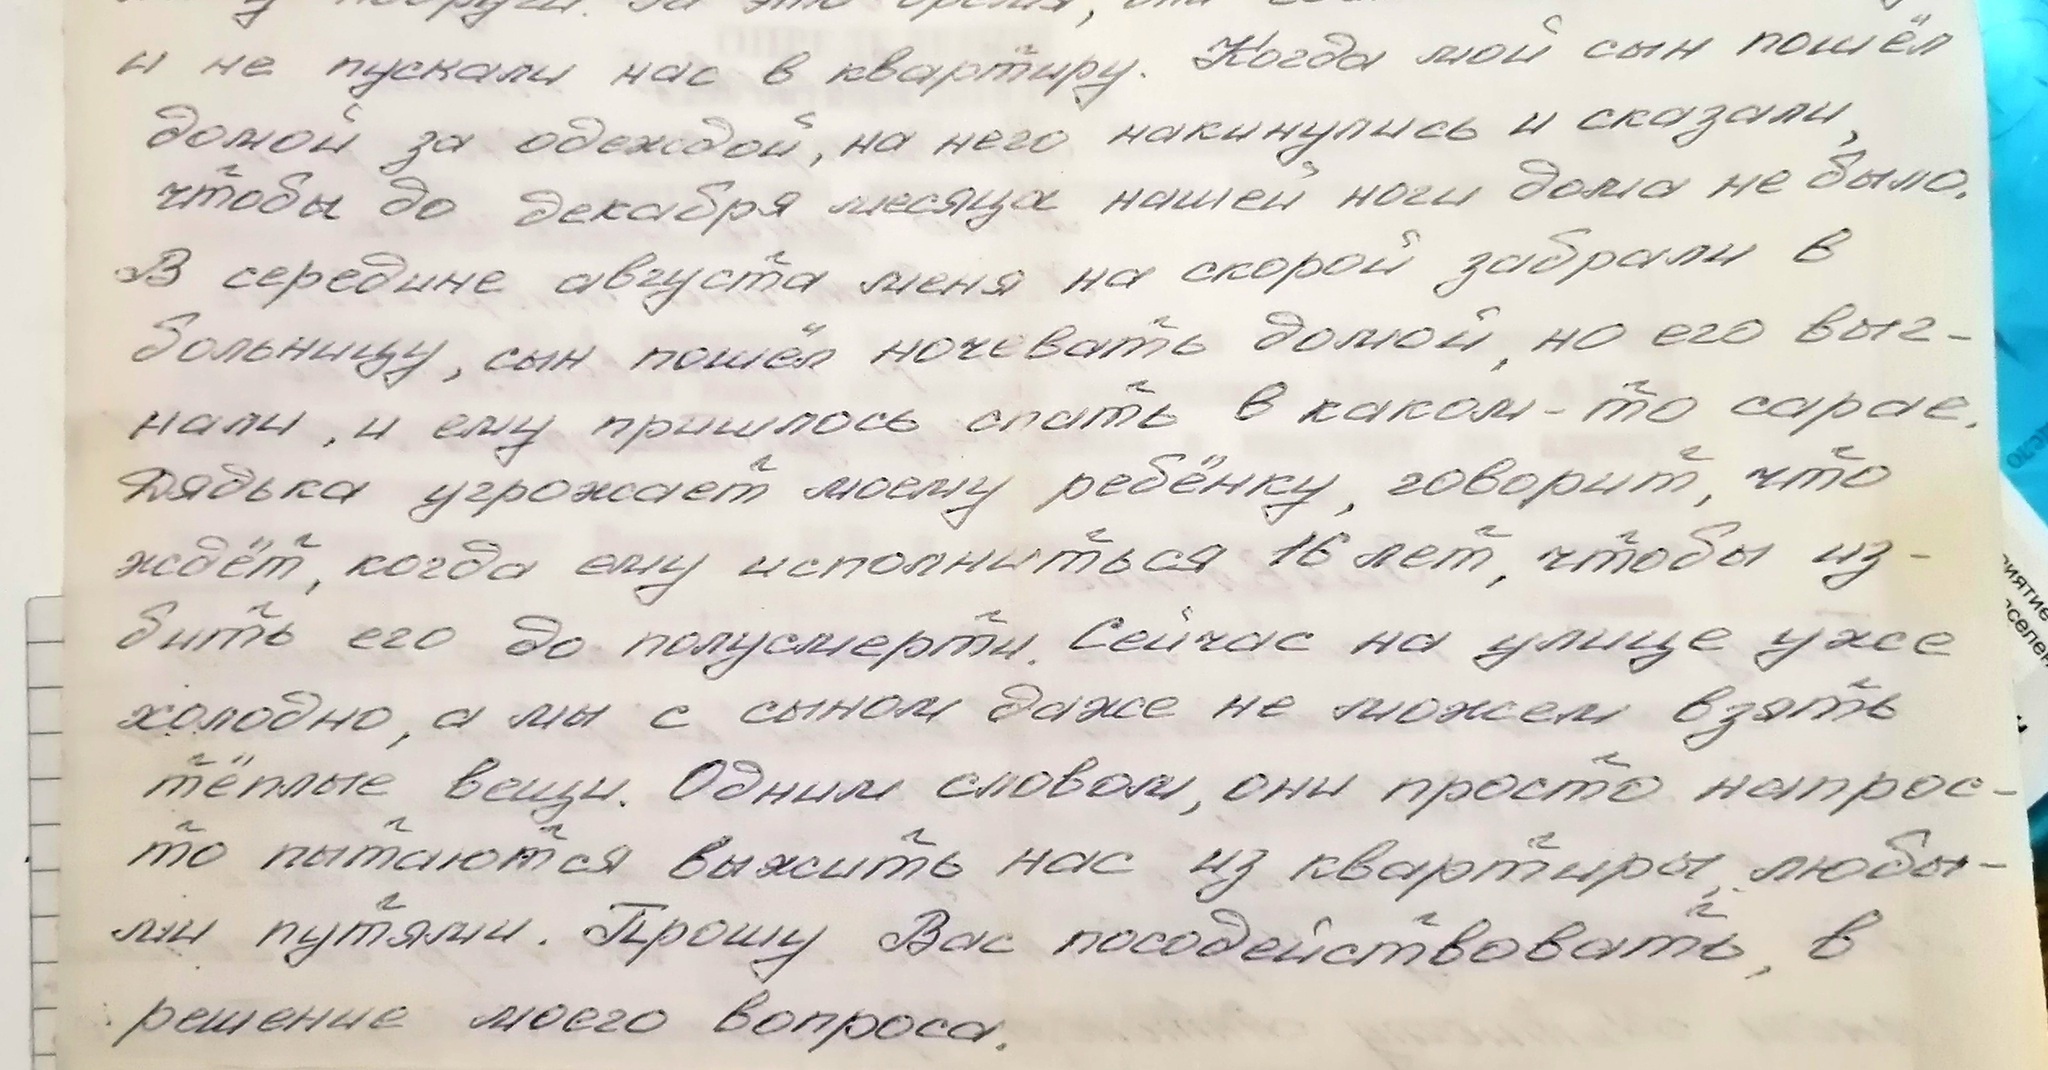 подруги. За это время, они
и не пускали нас в квартиру. Когда мой сын пошёл
домой за одеждой, на него накинулись и сказали,
чтобы до декабря месяца нашей ноги дома не было.
В середине августа меня на скорой забрали в
больницу, сын пошёл ночевать домой, но его выг-
нали, и ему пришлось спать в каком-то сарае.
Дядька угрожает моему ребёнку, говорит, что
ждёт, когда ему исполниться 16 лет, чтобы из-
бить его до полусмерти. Сейчас на улице уже
холодно, а мы с сыном даже не можем взять
тёплые вещи. Одним словом, они просто напрос-
то пытаются выжить нас из квартиры, любы-
ми путями. Прошу Вас посодействовать, в
решение моего вопроса.